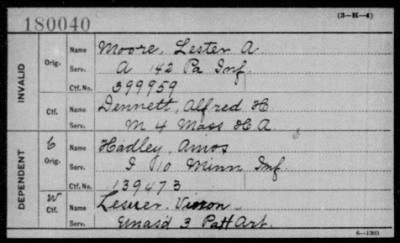 180040
(3-H-4)
INVALID
Orig.
Name Moore, Lester A
Serv. A 142 Pa Inf.
Ctf. No. 399959
Ctf.
Name Dennett, Alfred H
Serv. M 4 Mass H A
DEPENDENT
C Orig.
Name Hadley, Amos
Serv. I 10 Minn Inf
Ctf. No. 139473
W Ctf.
Name
Serv. 3
6-1303